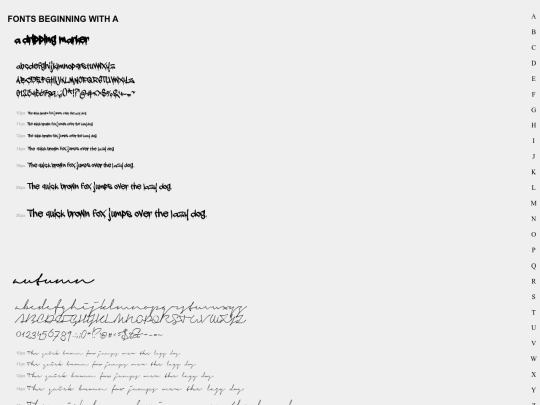 FONTS BEGINNING WITH A
a dripping marker
abcdefghijklmnopqrstuvwxyz
ABCDEFGHIJKLMNOPQRSTUVWXYZ
The quick brown fox jumps over the lazy dog.
The quick brown fox jumps over the lazy dog.
The quick brown fox jumps over the lazy dog.
The quick brown fox jumps over the lazy dog.
The quick brown fox jumps over the lazy dog.
The quick brown fox jumps over the lazy dog.
The quick brown fox jumps over the lazy dog.
autumn
abcdefghijklmnopqrstuvwxyz
ABCDEFGHIJKLMNOPQRSTUVWXYZ
The quick brown fox jumps over the lazy dog.
The quick brown fox jumps over the lazy dog.
The quick brown fox jumps over the lazy dog.
The quick brown fox jumps over the lazy dog.
A
B
C
D
E
F
G
H
I
J
K
L
M
N
O
P
Q
R
S
T
U
V
W
X
Y